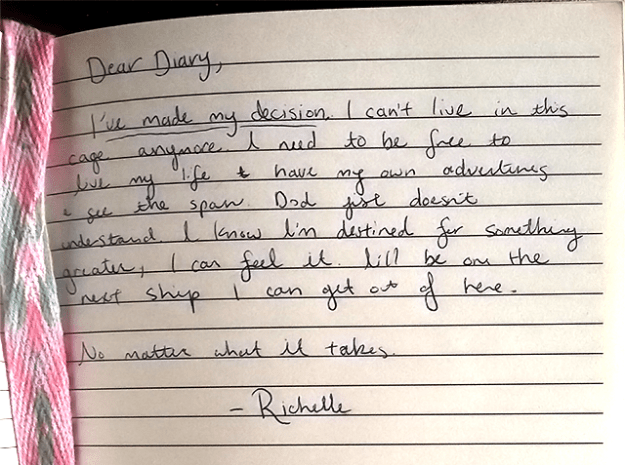 Dear Diary,
I've made my decision. I can't live in this
cage anymore. I need to be free to
live my life & have my own adventures
& see the span. Dad just doesn't
understand. I know I'm destined for something
greater, I can feel it. I'll be on the
next ship I can get out of here.
No matter what it takes.
- Richelle